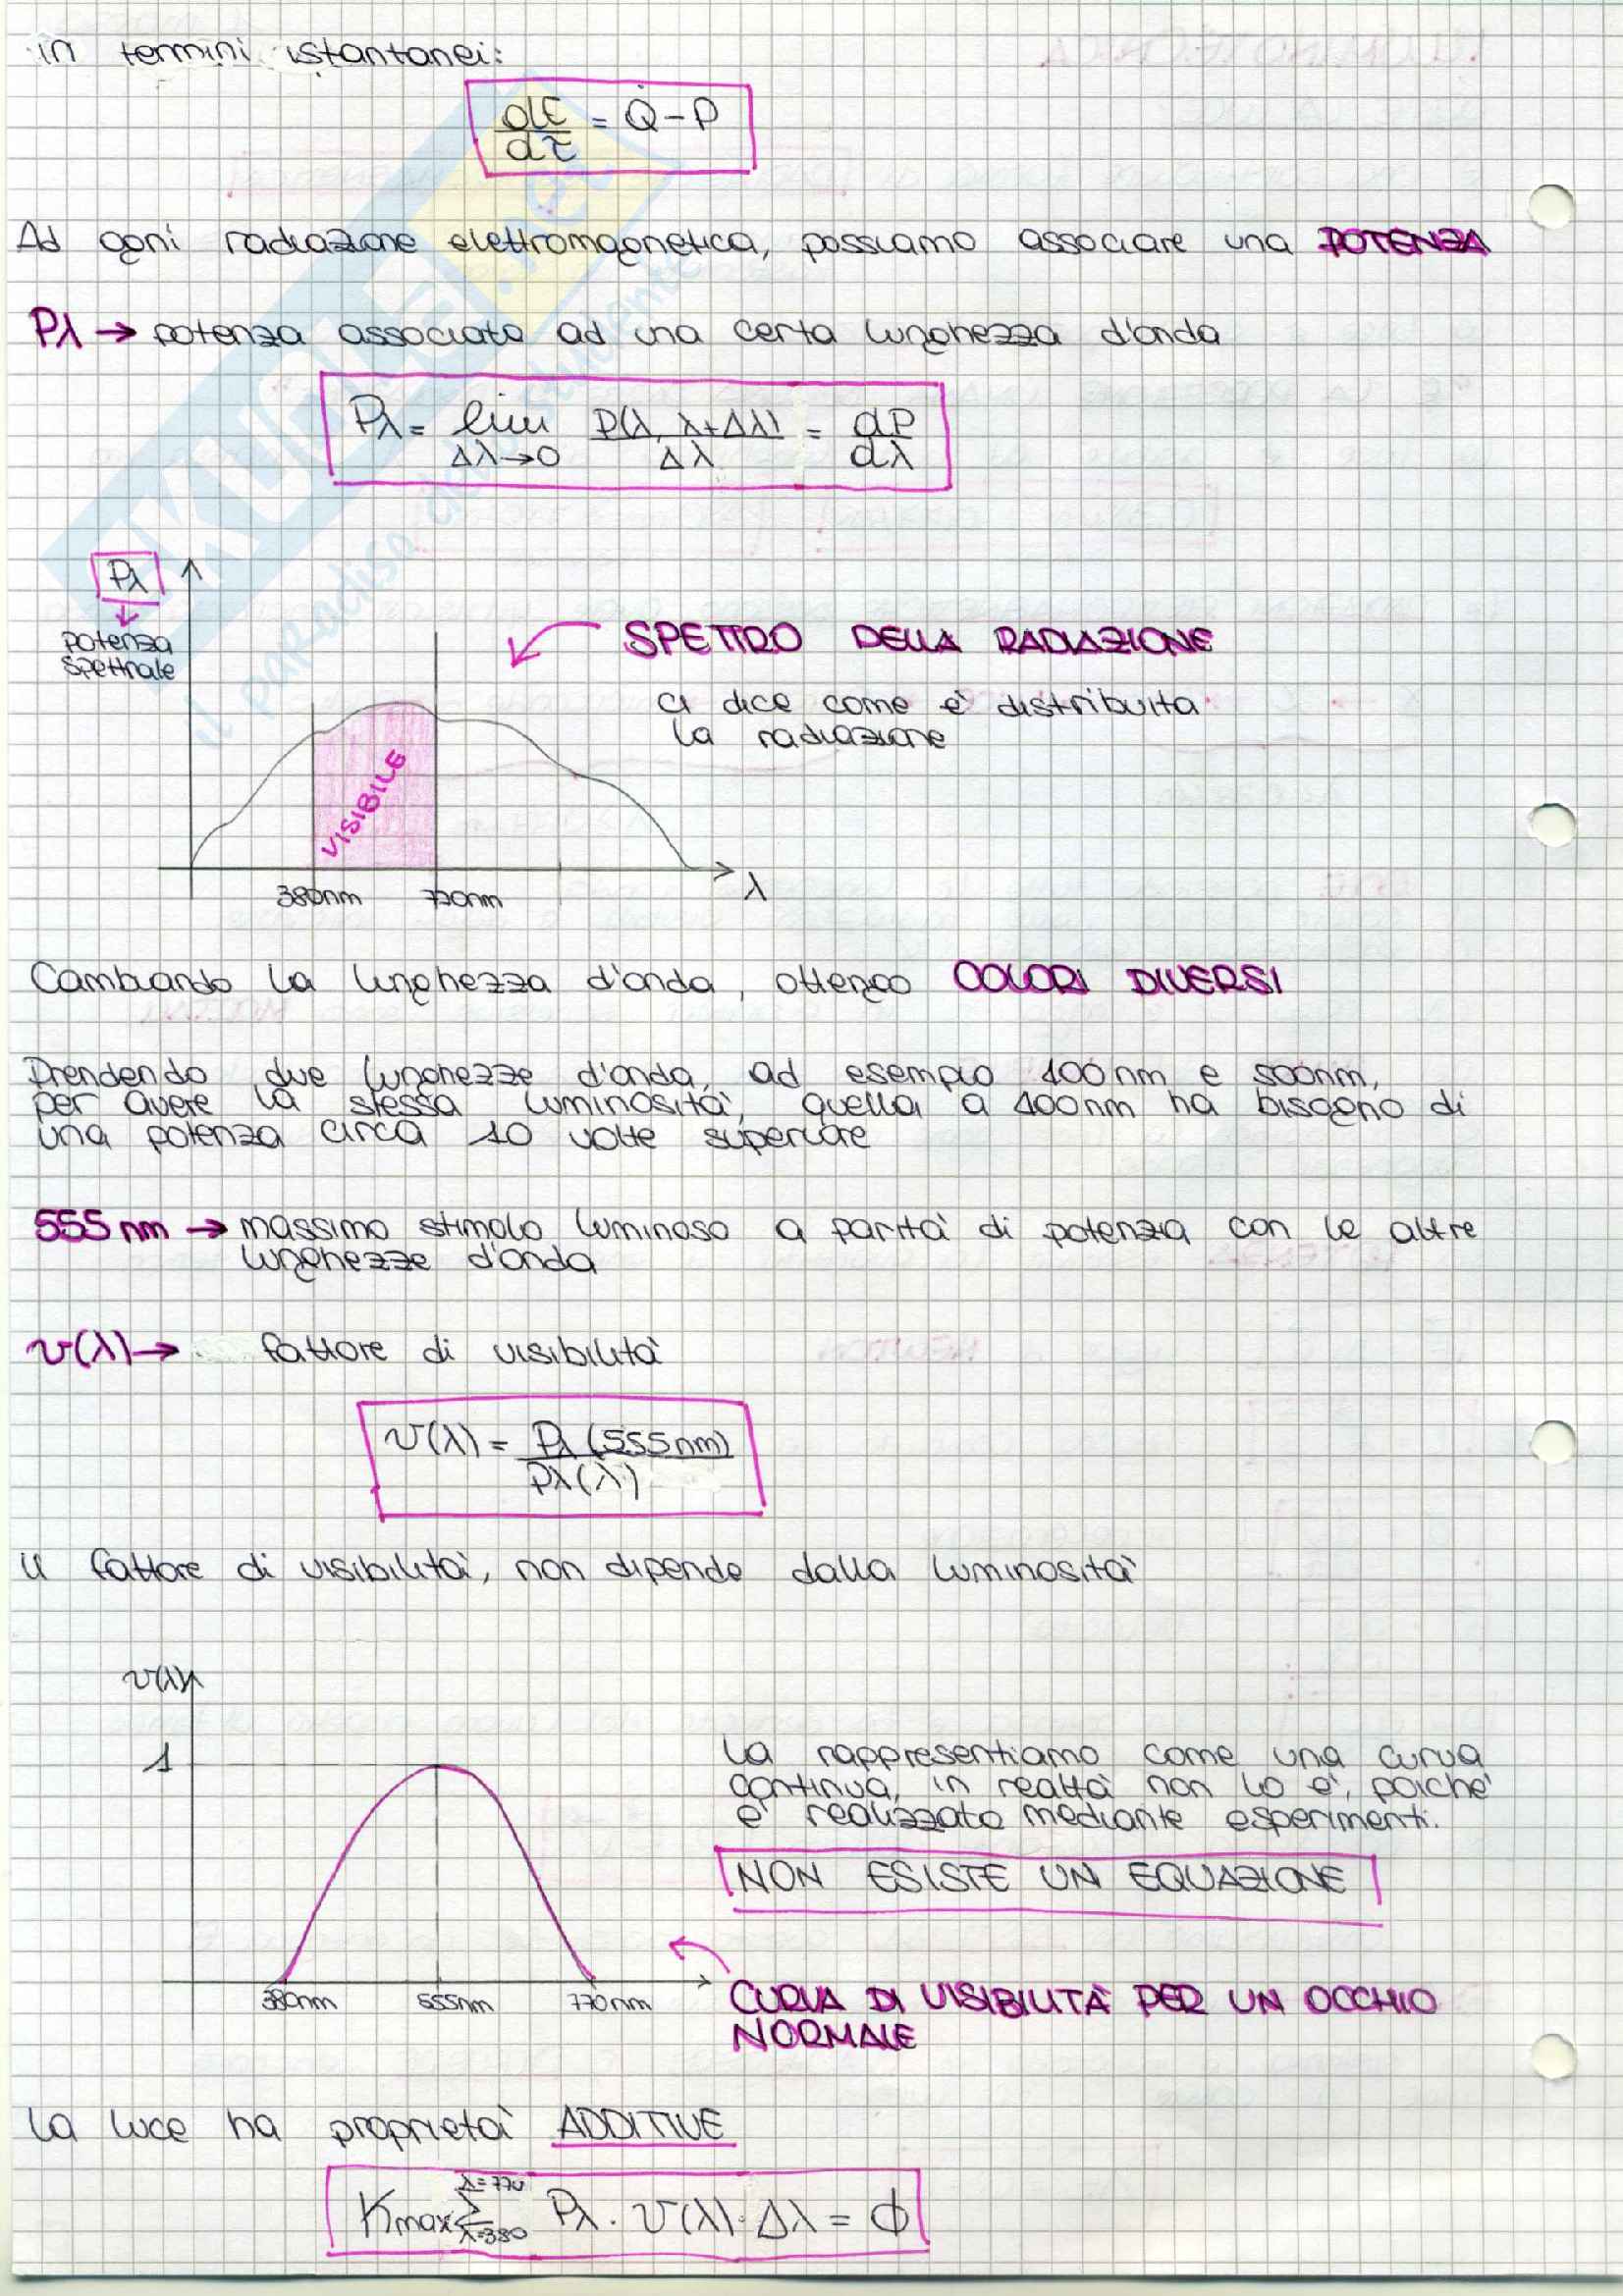 in termini istantanei:
dE/dτ = Q̇ - P
Ad ogni radiazione elettromagnetica, possiamo associare una POTENZA
Pλ → potenza associata ad una certa lunghezza d'onda
Pλ = lim Δλ→0 P(λ, λ+Δλ)/Δλ = dP/dλ
Pλ
potenza
spettrale
SPETTRO DELLA RADIAZIONE
ci dice come è distribuita
la radiazione
VISIBILE
380nm 720nm λ
Cambiando la lunghezza d'onda, ottengo COLORI DIVERSI
Prendendo due lunghezze d'onda, ad esempio 400nm e 500nm,
per avere la stessa luminosità, quella a 400nm ha bisogno di
una potenza circa 10 volte superiore
555 nm → massimo stimolo luminoso a parità di potenza con le altre
lunghezze d'onda
v(λ) → fattore di visibilità
v(λ) = Pλ(555nm)/Pλ(λ)
Il fattore di visibilità, non dipende dalla luminosità
v(λ)
1
La rappresentiamo come una curva
continua, in realtà non lo è, poiché
è realizzata mediante esperimenti.
NON ESISTE UN EQUAZIONE
380nm 555nm 770nm
CURVA DI VISIBILITÀ PER UN OCCHIO
NORMALE
La luce ha proprietà ADDITIVE
Kmax Σ λ=380 λ=770 Pλ · v(λ) · Δλ = ϕ